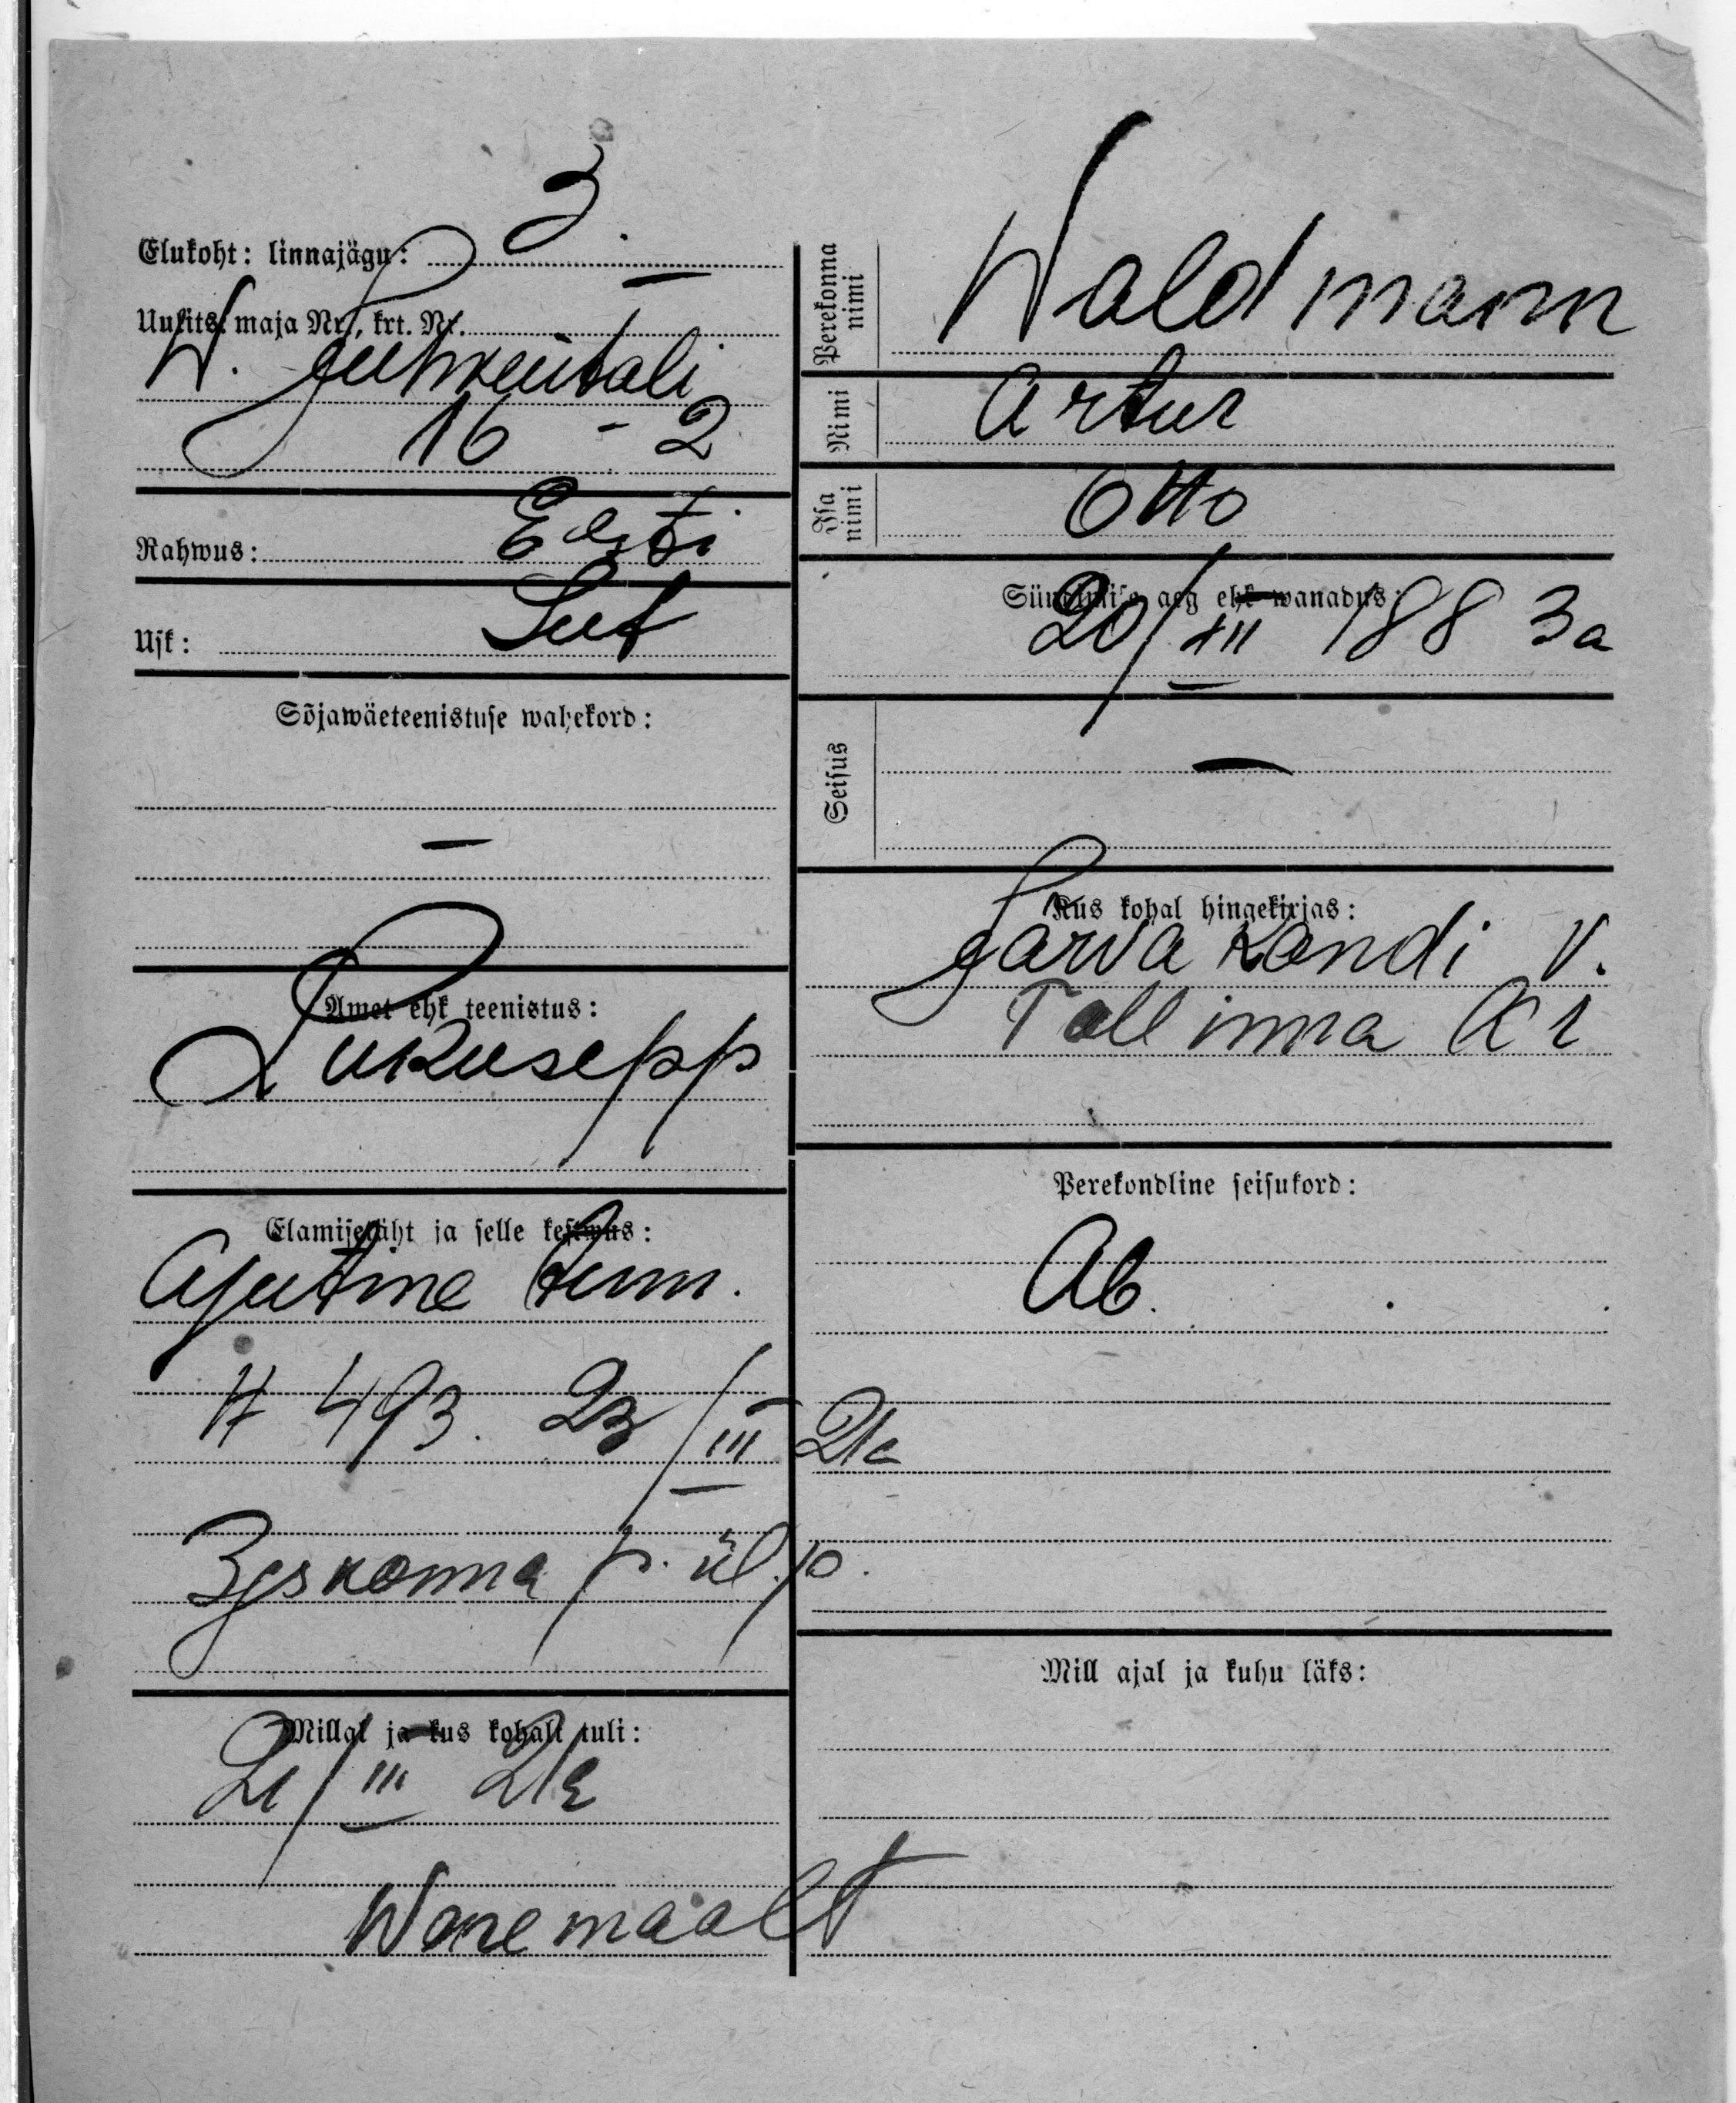 3.
Elukoht: linnajägu:
Uulits, maja Nr., krt. Nr.
W. Juhkentali
16 - 2
Rahwus: Eesti
Usk: Lut
Sõjawäeteenistuse wahekord:
—
Amet ehk teenistus:
Lukusepp
Elamisetäht ja selle kestwus:
Ajutine tunn.
N 493. 23/III 21a
3 jskonna p. ül. p.
Millal ja kus kohalt tuli:
21/III 21a
Wenemaalt
Perekonna nimi
Waldmann
Nimi
Artur
Isa nimi
Otto
Sündimise aeg ehk wanadus:
20/XII 1883a
Seisus
—
Kus kohal hingekirjas:
Järwakandi v.
Tallinna Kr
Perekondline seisukord:
Ab.
Mill ajal ja kuhu läks: